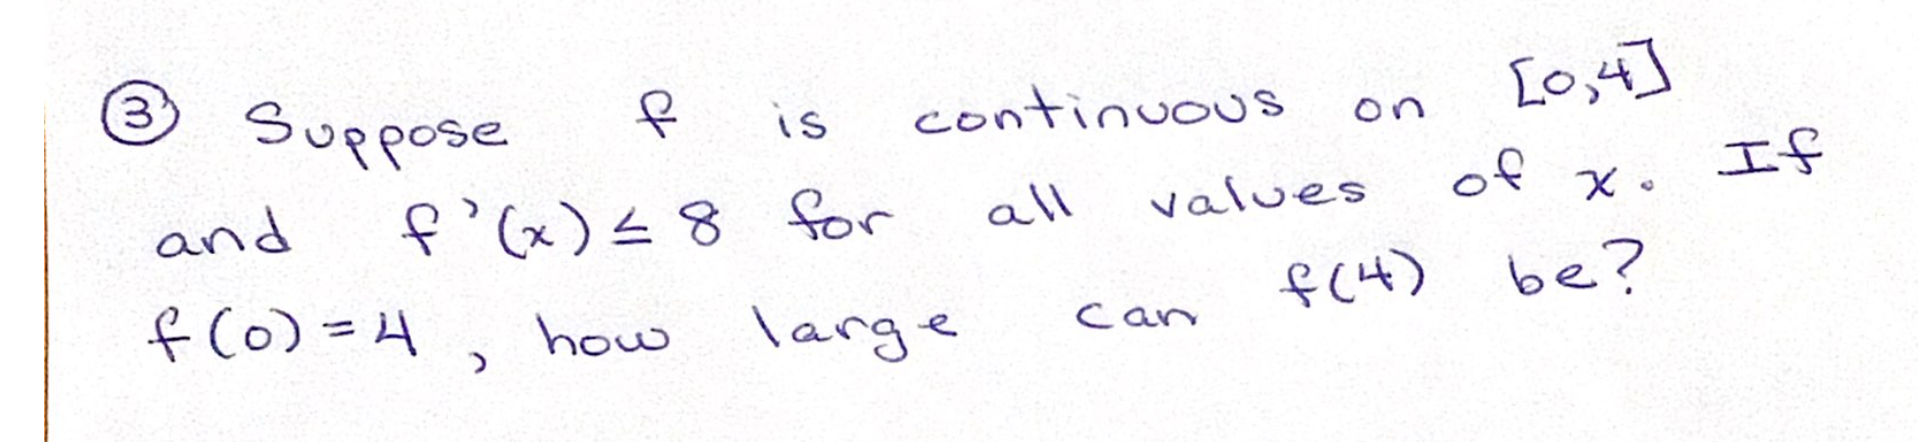 ③ Suppose f is continuous on [0,4]
and f'(x) ≤ 8 for all values of x. If
f(0) = 4, how large can f(4) be?